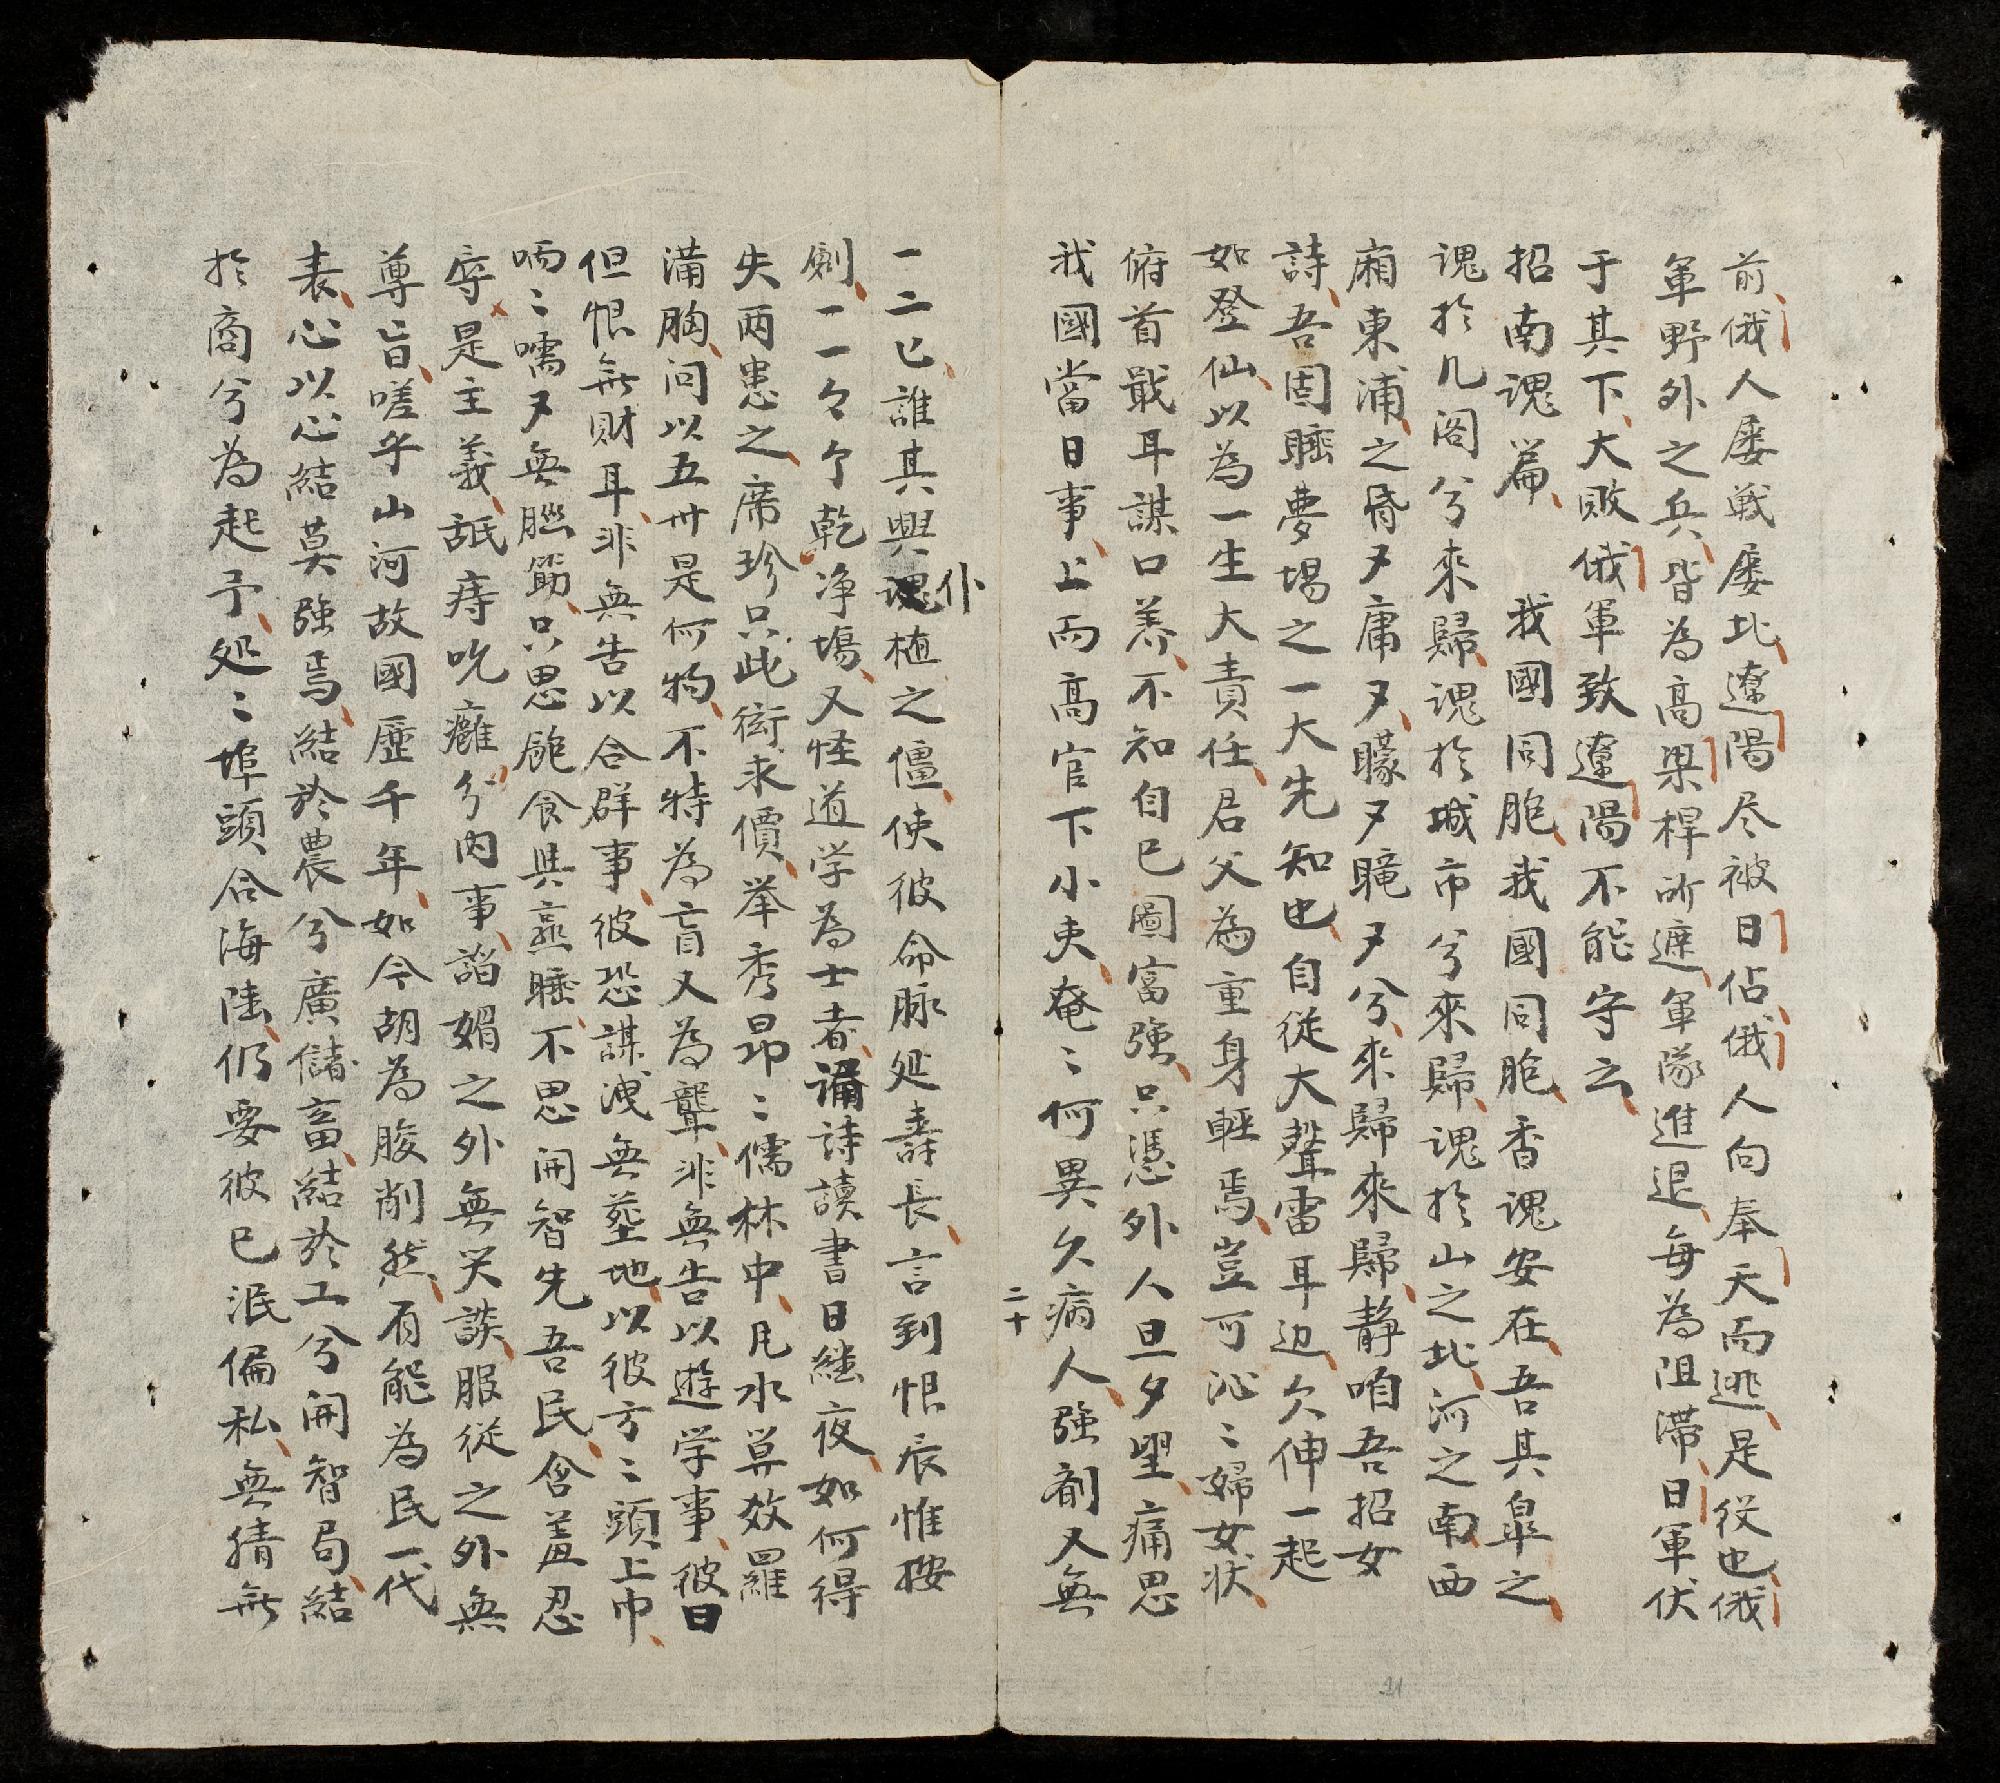 前俄人屡戦屡北遼陽尽被日佔俄人向奉天而逃是役也俄
軍野外之兵皆為高梁桿所遮軍隊進退每為阻滯日軍伏
于其下大敗俄軍致遼陽不能守云
招南魂篇 我國同胞我國同胞香魂安在吾其皐之
魂於几閣兮來歸魂於城市兮來歸魂於山之北河之南西
廂東浦之昏夕庸夕夕矇夕夕矓夕兮來歸來歸静咱吾招女
詩吾固睡夢場之一大先知也自従大聲雷耳边欠伸一起
如登仙以為一生大責任君父為重身軽焉豈可沁〻婦女状
俯首戢耳謀口养不知自已圖富強只憑外人旦夕望痛思
我國當日事上而高官下小吏奄〻何異久病人強剤又無
二十
一二已誰其與仆植之僵使彼命脉延壽長言到恨辰惟按
劍一一々个乾净塲又怪道学為士者誦詩讀書日継夜如何得
失两患之席珍只此衒求價举秀昂〻儒林中凡水算效羅
満胸问以五卅是何物不特為盲又為聾非無告以遊学事彼曰
但恨無財耳非無告以合群事彼恐謀洩無塟地以彼方〻頭上巾
唡〻嚅夕無腦筋只思飽食與熹睡不思開智先吾民含羞忍
辱是主義舐痔吮癰分内事謟媚之外無咲談服従之外無
尊旨嗟乎山河故國歴千年如今胡為朘削然有能為民一代
表心以心結莫強焉結於農兮廣儲畜結於工兮開智局結
於商兮為起予処〻埠頭合海陸仍要彼已泯偏私無猜無